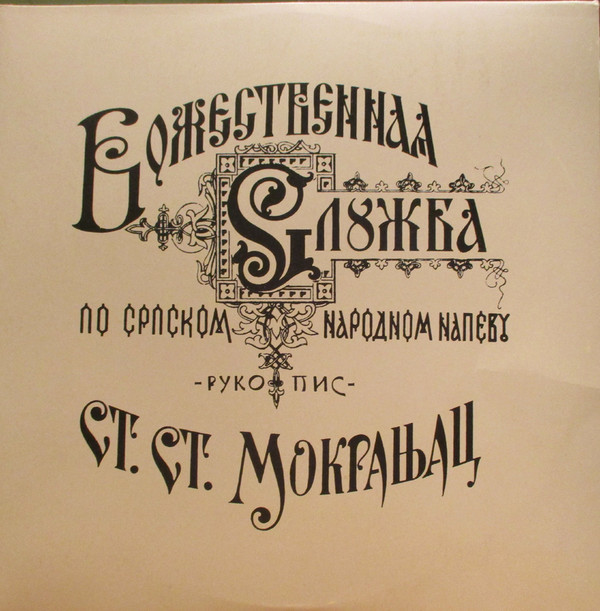 БОЖЕСТВЕННАЯ
СЛУЖБА
ПО СРПСКОМ НАРОДНОМ НАПЕВУ
-РУКОПИС-
СТ. СТ. МОКРАЊАЦ